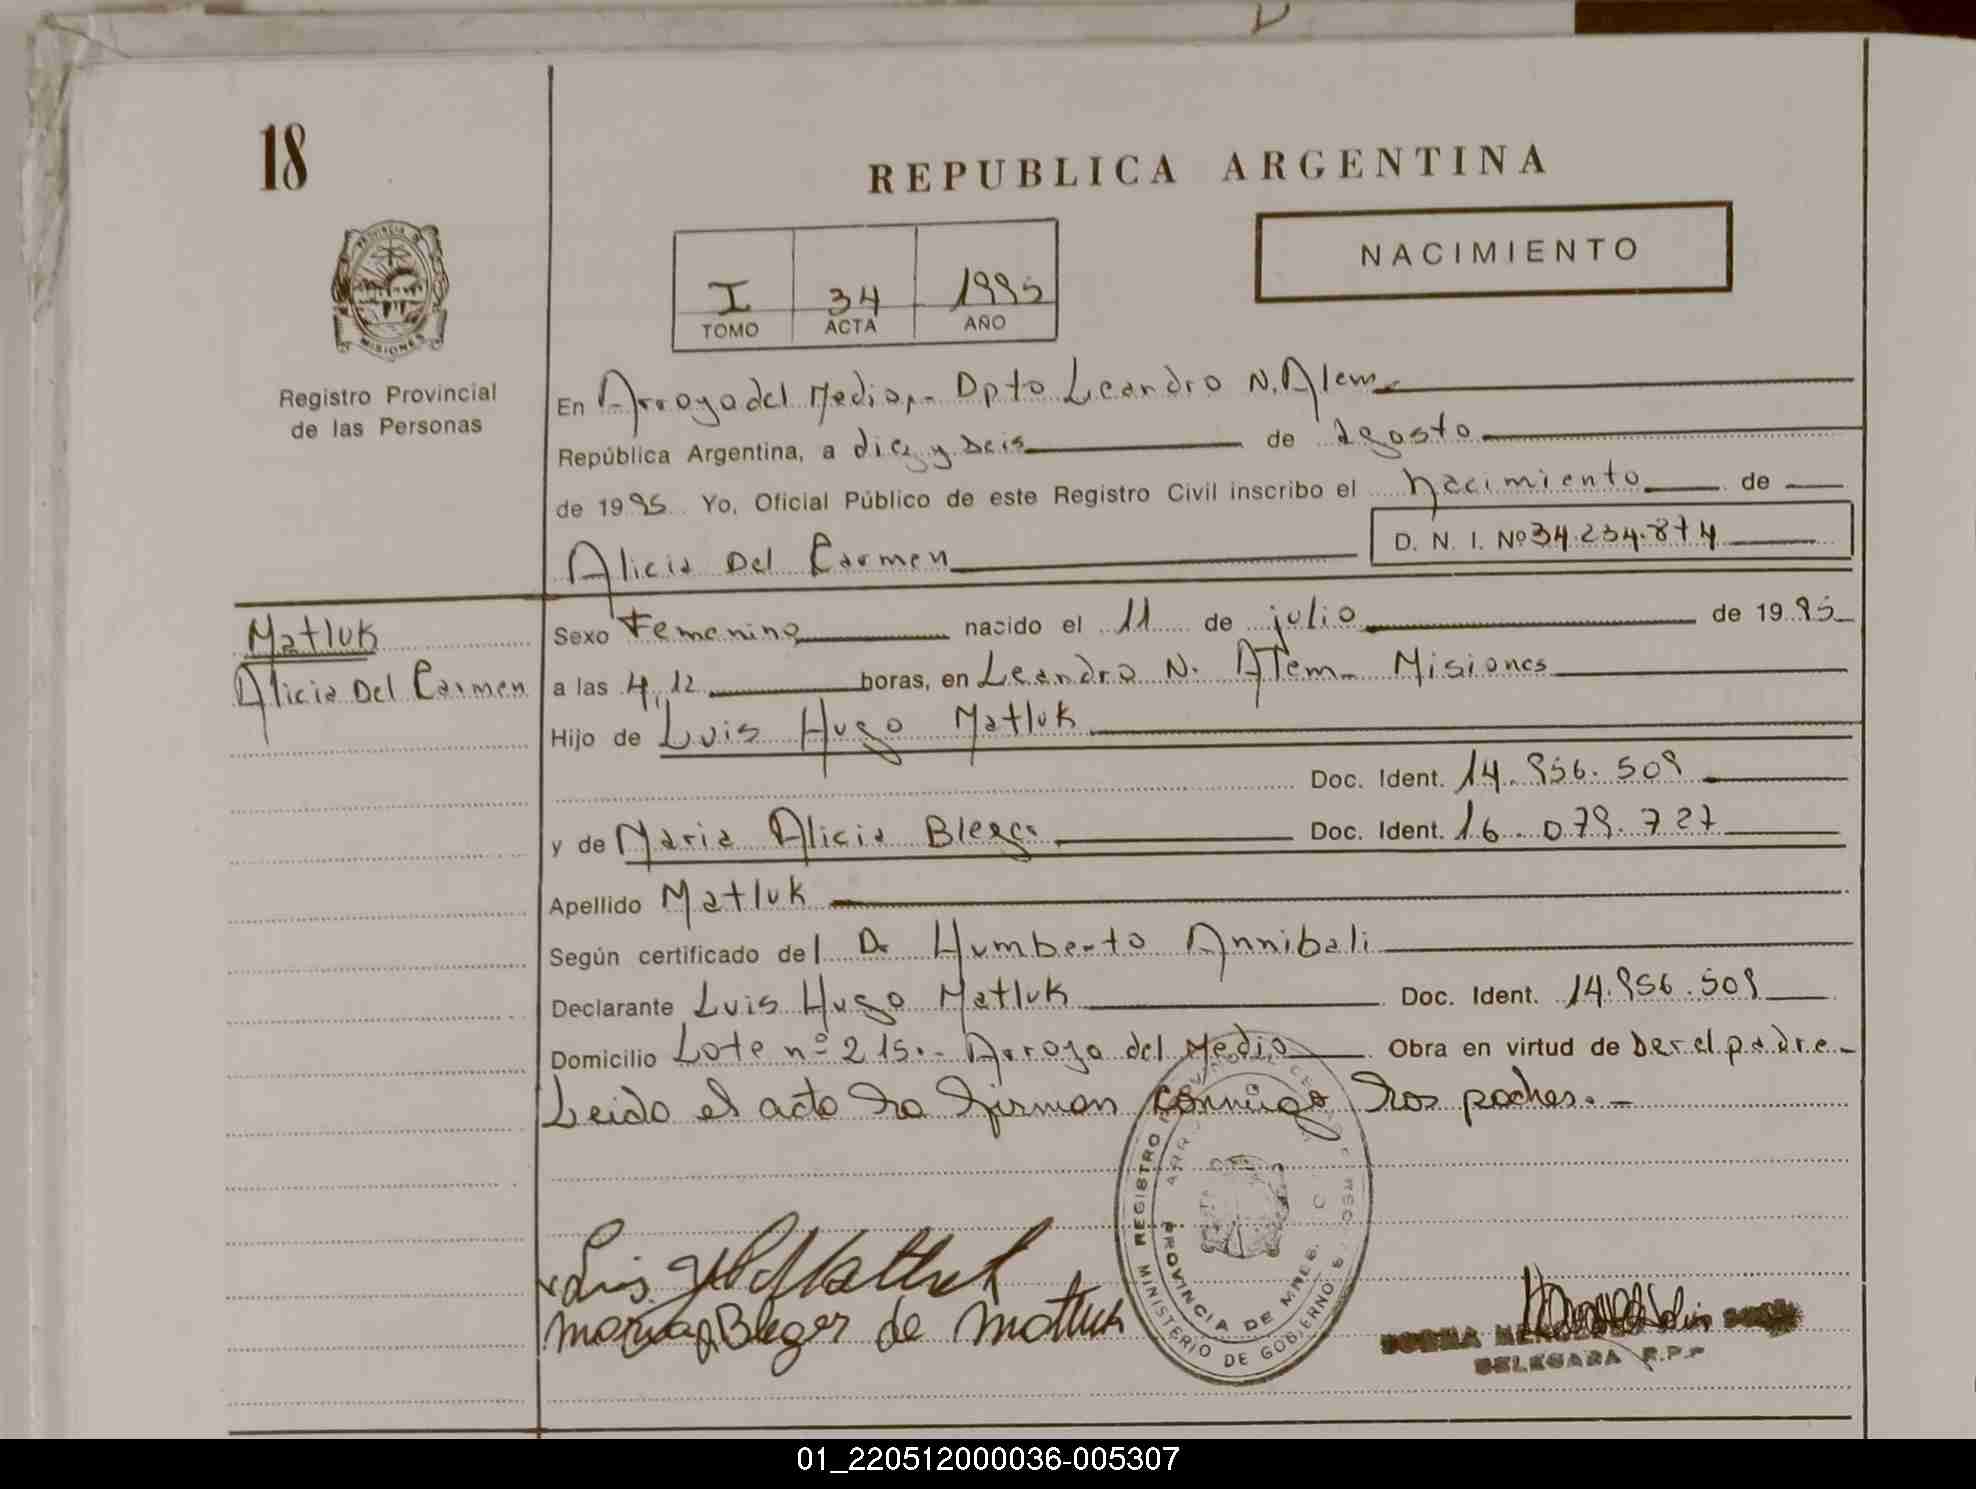 18
REPUBLICA ARGENTINA
NACIMIENTO
PROVINCIA DE
MISIONES
I 34 1995
TOMO ACTA AÑO
Registro Provincial
de las Personas
En Arroyo del Medio,- Dpto Leandro N. Alem
República Argentina, a diez y seis de agosto
de 1995 Yo, Oficial Público de este Registro Civil inscribo el nacimiento de
Alicia Del Carmen
D. N. I. Nº 34.234.874
Matluk
Alicia Del Carmen
Sexo Femenino nacido el 11 de julio de 1995
a las 4,12 horas, en Leandro N. Alem - Misiones
Hijo de Luis Hugo Matluk
Doc. Ident. 14.956.509
y de Maria Alicia Doc. Ident. 16.079.727
Apellido Matluk
Según certificado del Dr Humberto Annibali
Declarante Luis Hugo Matluk Doc. Ident. 14.956.509
Domicilio Lote nº 215.- Arroyo del Medio Obra en virtud de ser el padre -
Leido el acta la firman conmigo los padres. -
REGISTRO
PROVINCIA DE MNES.
MINISTERIO DE GOBIERNO
Luis H Matluk
Maria A Bleger de Matluk
DELEGADA R.P.P
01_220512000036-005307